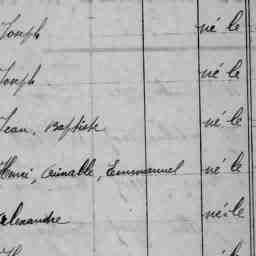 Joseph né le
Joseph né le
Jean, Baptiste né le
Henri, Aimable, Emmanuel né le
Alexandre né le